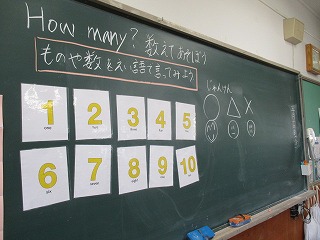 How many? 数えてあそぼう
ものや数をえい語で言ってみよう
じゃんけん
○ △ ×
1 2 3 4 5
one two three four five
6 7 8 9 10
six seven eight nine ten